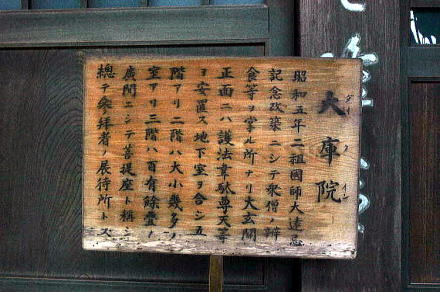 大庫院
ダイクイン
昭和五年二祖國師大遠忌
記念改築ニシテ衆僧ノ辨
食等ヲ掌ル所ナリ大玄関
正面ニハ護法韋駄尊天等
ヲ安置ス地下室ヲ合シ五
階アリ二階ハ大小幾多ノ
室アリ三階ハ百有餘疊ノ
廣間ニシテ菩提座ト稱シ
總テ參拜者ノ展待所トス